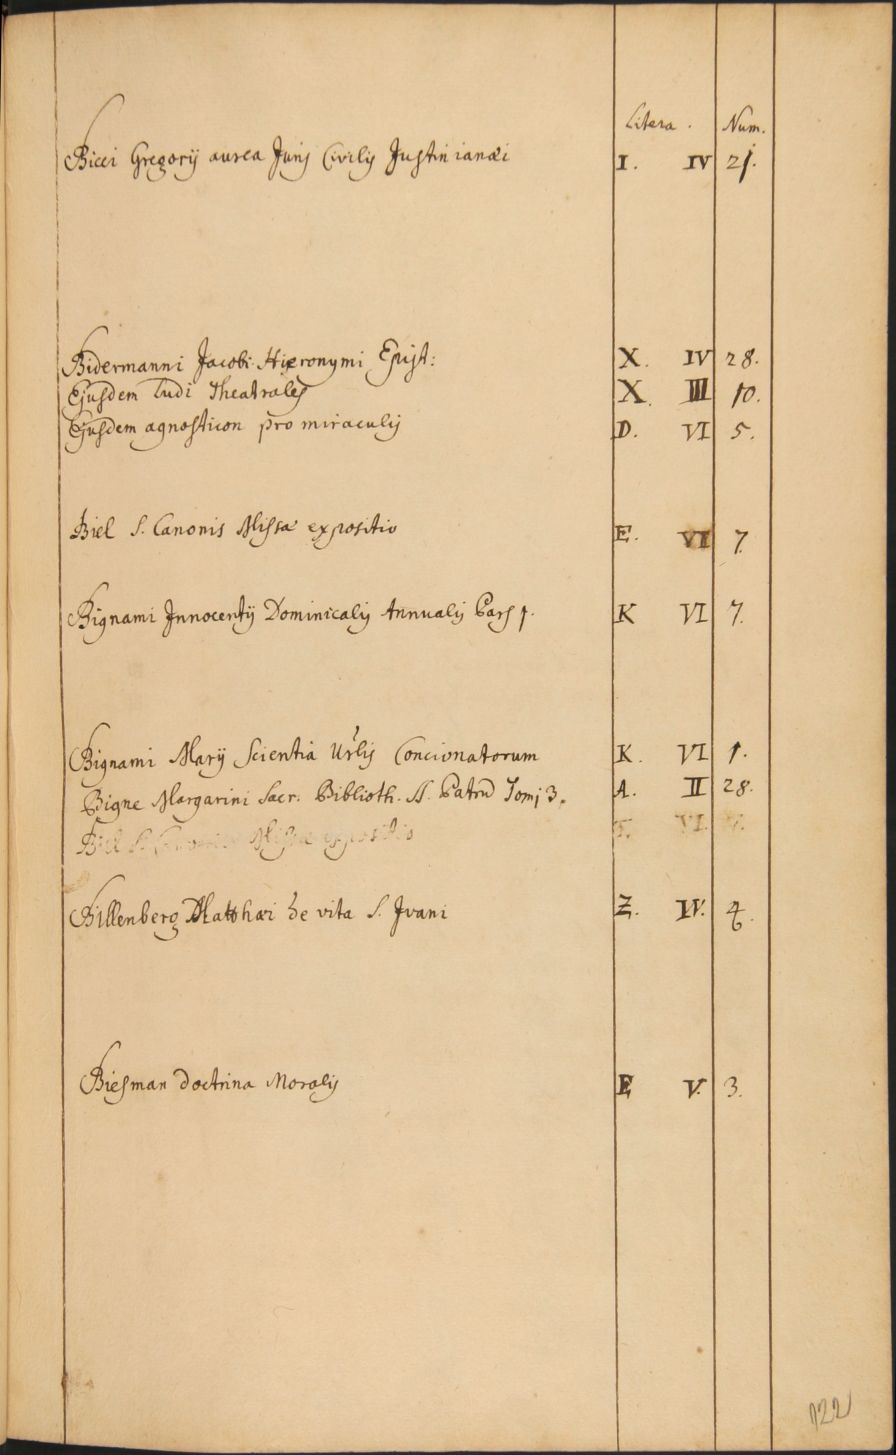 Litera. Num.
Bicci Gregorij aurea Juris Civilis Justinianæi I. IV 21.
Bidermanni Jacobi Hieronymi Epist: X. IV 28.
Ejusdem Ludi Theatrales X. III 10.
Ejusdem agnosticon pro miraculis D. VI 5.
Biel S. Canonis Missæ expositio E. VI 7
Bignami Innocentij Dominicalis Annualis Pars 1. K VI 7.
Bignami Marij Scientia Urlis Concionatorum K. VI 1.
Bigne Margarini Sacr. Biblioth. SS. Patrū Tomi 3. A. II 28.
Biel S. Canonis Missæ expositio VI.
Billenberg Matthæi de vita S. Ivani Z. IV. 4.
Biesman Doctrina Moralis E V. 3.
122